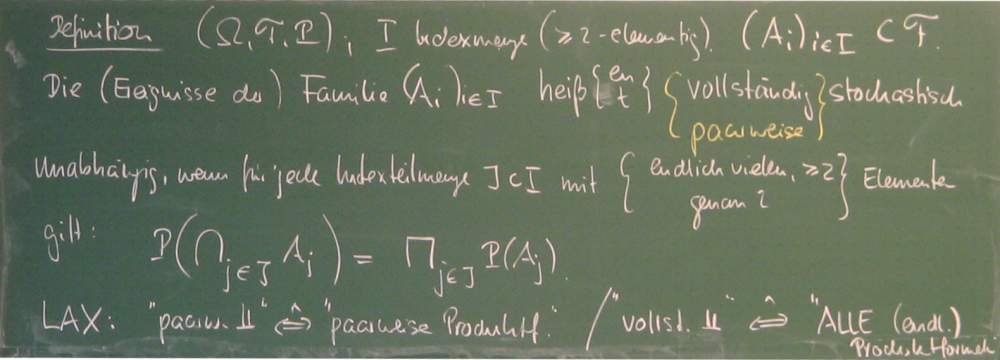 Definition (Ω, F, P), I Indexmenge (≥2-elementig). (Aᵢ)ᵢ∈I ⊂ F.
Die (Ereignisse der) Familie (Aᵢ)ᵢ∈I heiß{en / t} {vollständig / paarweise} stochastisch
unabhängig, wenn für jede Indexteilmenge J⊂I mit {endlich vielen, ≥2 / genau 2} Elementen
gilt: P(⋂j∈J Aj) = ∏j∈J P(Aj).
LAX: "paarw. ⫫" ⇔̂ "paarweise Produktf." / "vollst. ⫫" ⇔̂ "ALLE (endl.)
Produktformeln